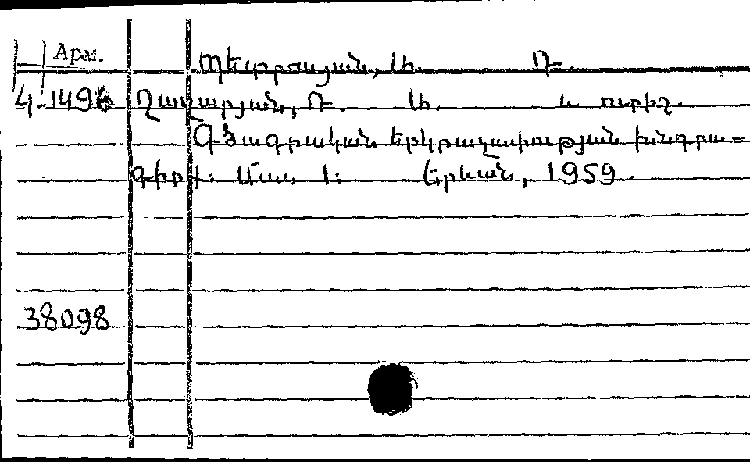 Арм.
Պետրոսյան, Ա. Դ.
Կ-1496 Ղազարյան, Ռ. Ա. և ուրիշ.
Գծագրական երկրաչափության խնդրա-
գիրք: Մաս 1: Երևան, 1959.
38098